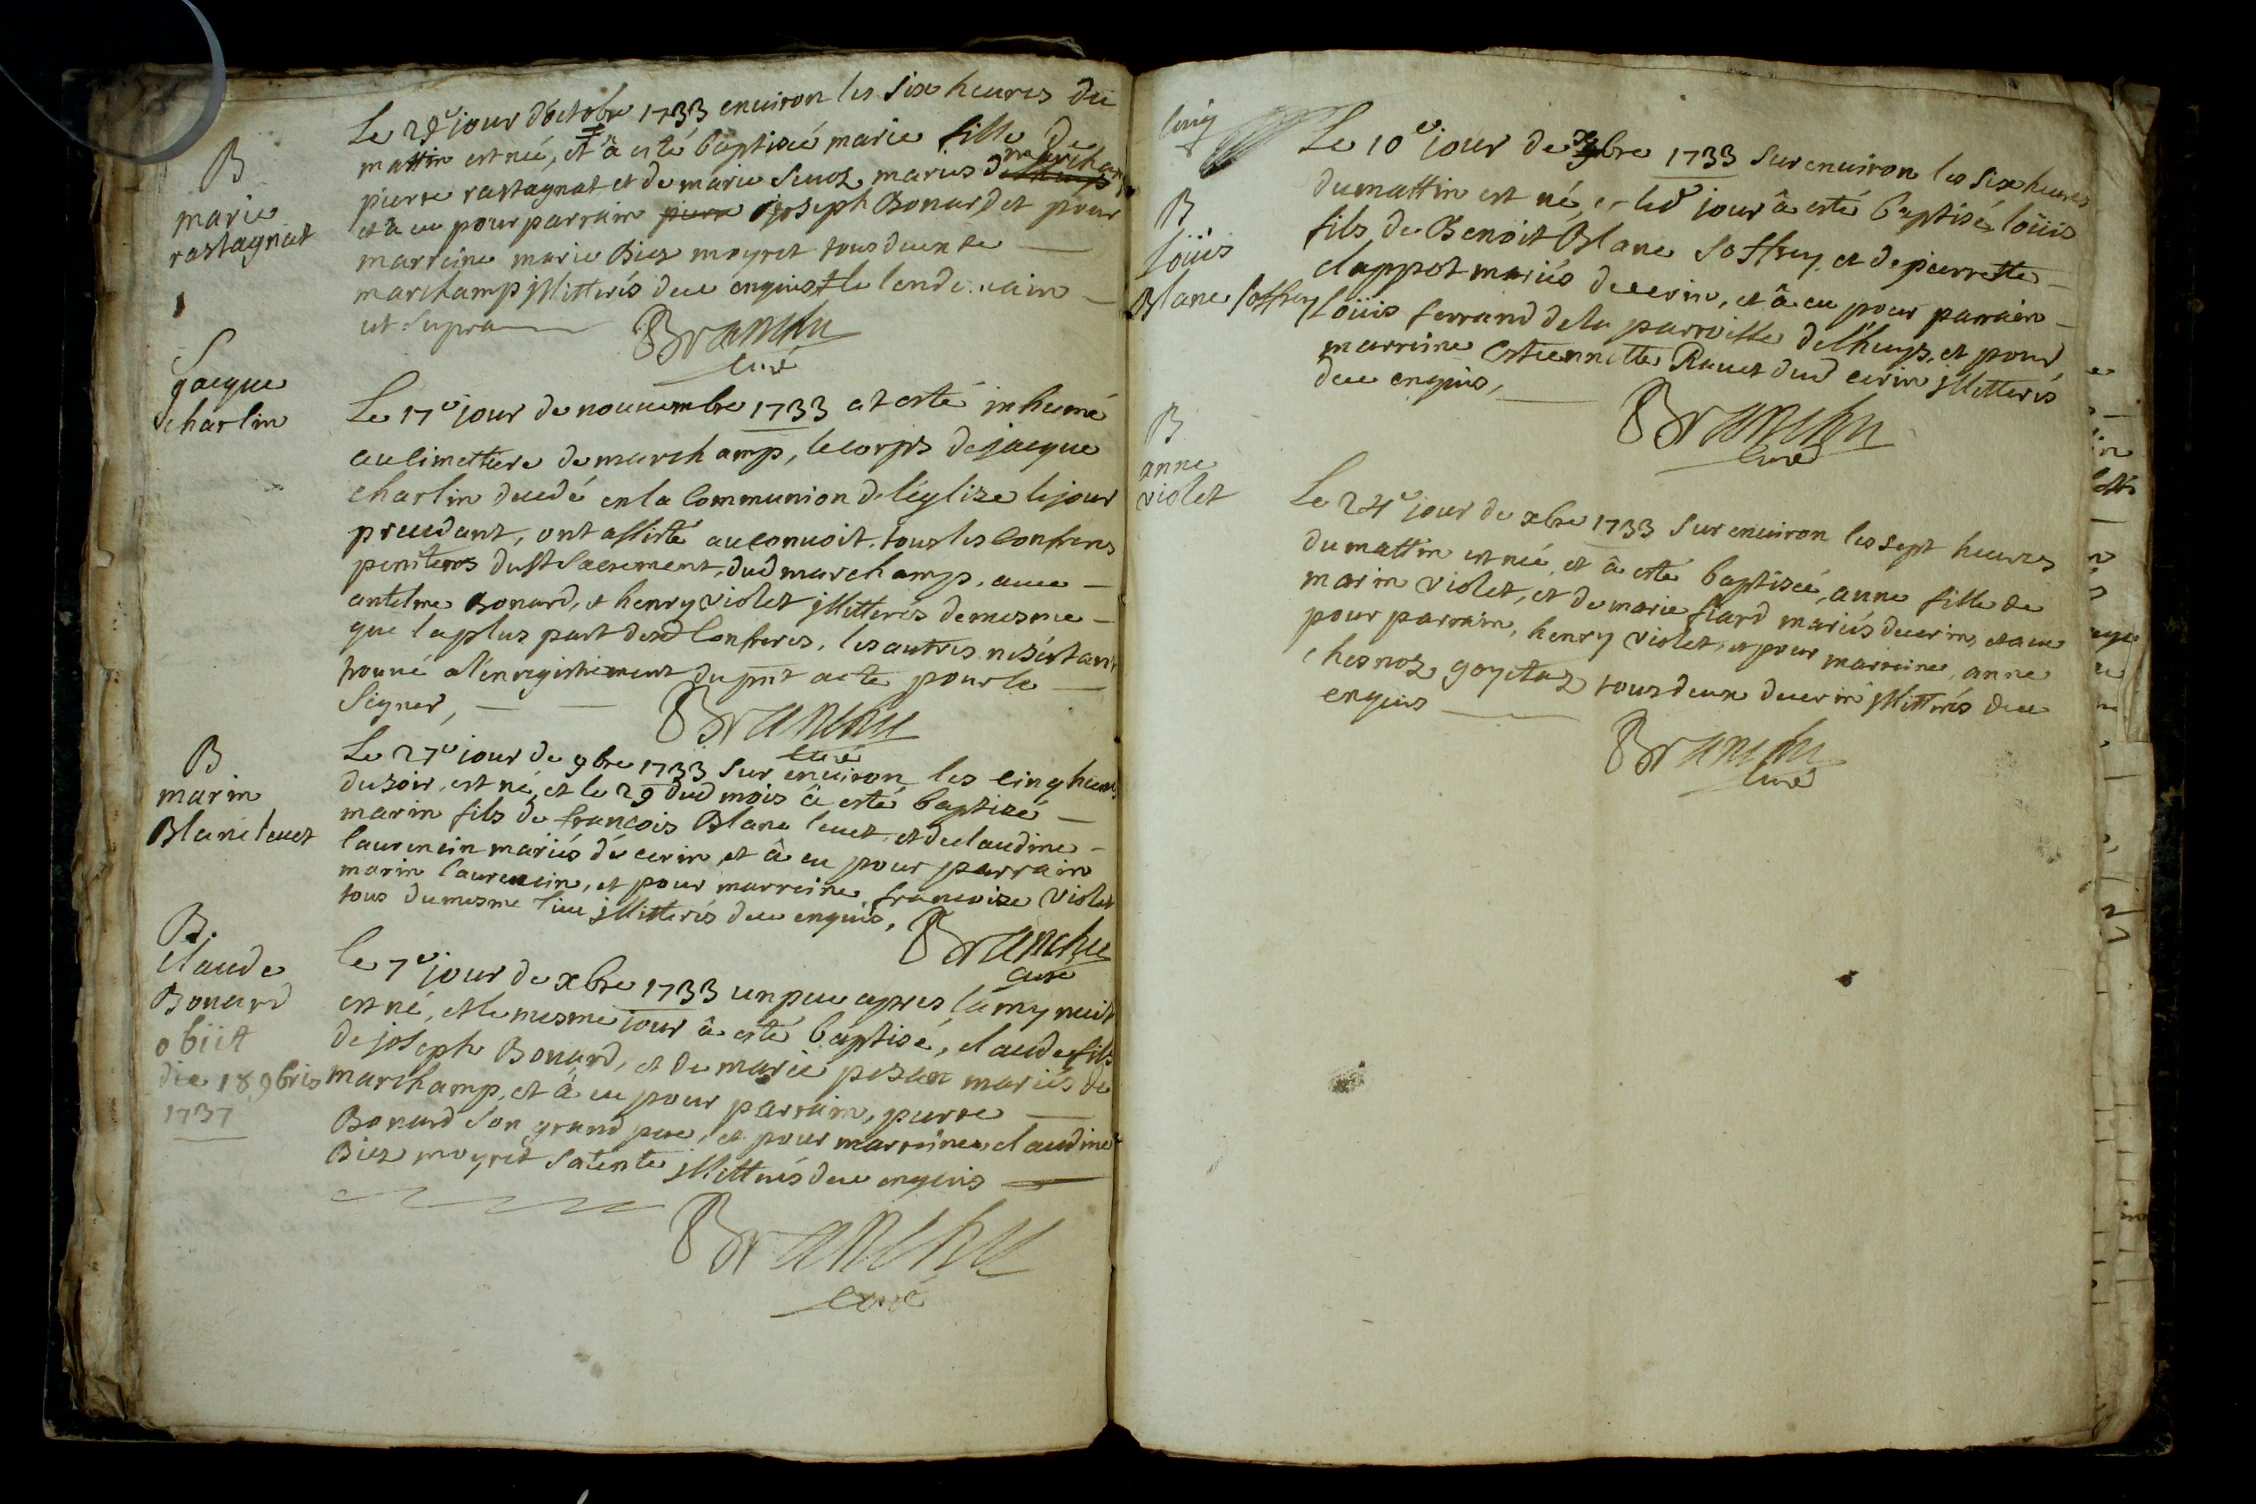 B
marie
rastagnat
Le 29e jour d'octobre 1733 environ les six heures du
mattin est neé, et â esté baptiseé marie fille de
pierre rastagnat et de marie mariés de marchamp
et â eu pour parrain pierre joseph Bonard et pour
marreine marie Biez moyret tous deux de
marchamp illitterés de ce enquis le lendemain
ut supra
Branchu
curé
S
jacque
charlin
Le 17e jour de nouuembre 1733 at esté inhumé
au cimettiere de marchamp, le corps de jacque
charlin decedé en la Communion de l'églize le jour
precedant, ont assisté au conuoit, tous les Confreres
penitens du st sacrement, dud marchamp, auec
antelme Bonard, et henry violet illitterés de mesme
que la plus part desd Confreres, les autres ne s'estant
trouué a l'enregistrement du pnt acte pour le
signer,
Branchu
curé
B
marin
Blanc leuet
Le 27e jour de 9bre 1733 sur environ les cinq heures
du soir, est né, et le 29 dud mois â esté baptizé
marin fils de francois Blanc leuet et de claudine
laurencin mariés de cerin, et â eu pour parrain
marin laurencin, et pour marreine, francoise violet
tous du mesme lieu illitterés de ce enquis,
Branchu
curé
B.
claude
Bonard
obiit
die 18 9bris
1737
Le 7e jour de xbre 1733 un peu apres la mynuit
est né, et le mesme jour â esté baptisé, claude fils
de joseph Bonard, et de marie mariés de
marchamp, et â eu pour parrain, pierre
Bonard son grand pere, et pour marreine claudine
Biez moyret sa tente illitterés de ce enquis
Branchu
curé
cinq
B
loüis
Blanc soffrey
Le 10e jour de xbre 1733 sur environ les six heures
du mattin est né, et led jour â esté baptisé, loüis
fils de Benoit Blanc soffrey, et de pierrette
clappot mariés de cerin, et â eu pour parrain
loüis ferrand de la parroisse de l'huys, et pour
marreine Estiennette Rauet dud cerin illitterés
de ce enquis,
Branchu
curé
B
anne
violet
Le 24e jour de xbre 1733 sur environ les sept heures
du mattin est neé, et â esté baptiseé, anne fille de
marin violet, et de marie fiard mariés de cerin, et a eu
pour parrain, henry violet, et pour marreine, anne
goyetaz tous deux de cerin illitterés de ce
enquis
Branchu
curé